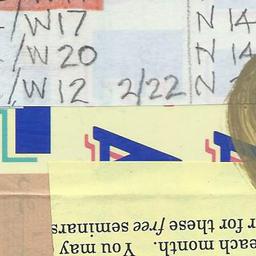 /W17 N 14
/W 20 N 14
/W 12 2/22 N
each month. You may
r for these free seminars